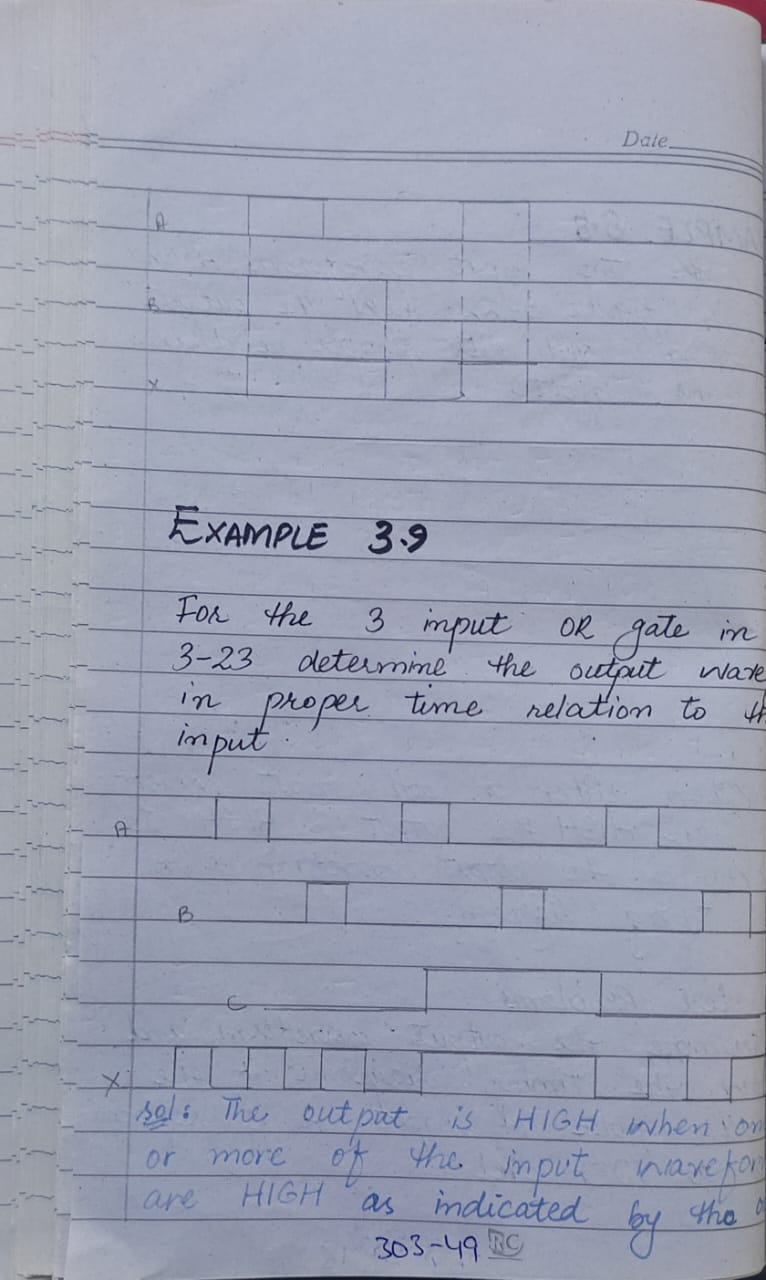 Date
A
B
X
EXAMPLE 3.9
For the 3 input OR gate in
3-23 determine the output wave
in proper time relation to th
input.
A
B
C
X
sol: The output is HIGH when on
or more of the input wavefor
are HIGH as indicated by the o
303-49 RC